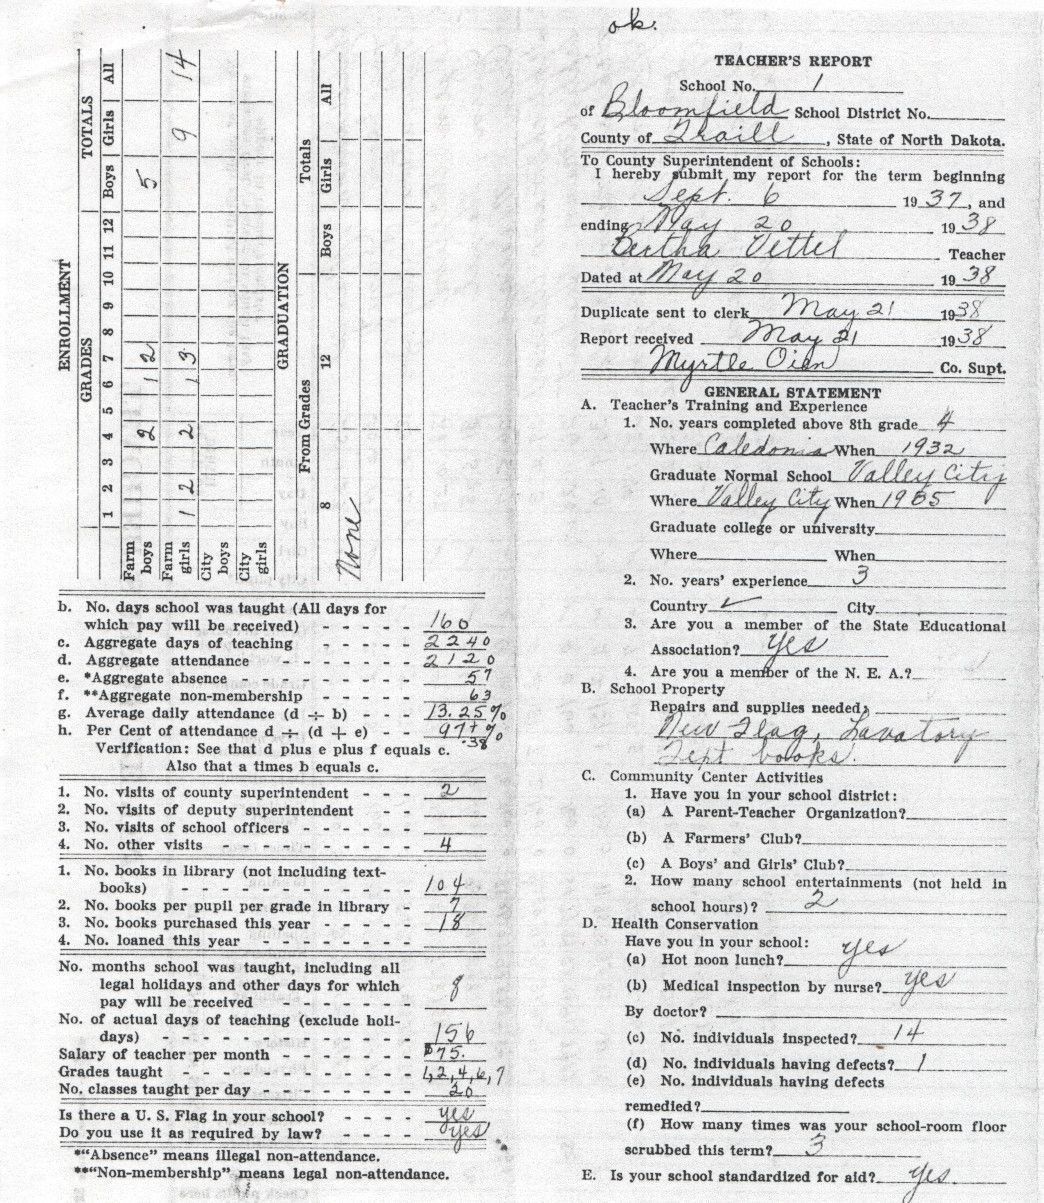 ok.
ENROLLMENT
GRADES TOTALS
1 2 3 4 5 6 7 8 9 10 11 12 Boys Girls All
Farm boys 2 1 2 5
Farm girls 1 2 2 1 3 9 14
City boys
City girls
GRADUATION
From Grades Totals
8 12 Boys Girls All
None
b. No. days school was taught (All days for
which pay will be received) - - - - - 160
c. Aggregate days of teaching - - - - - - 2240
d. Aggregate attendance - - - - - - - 2120
e. *Aggregate absence - - - - - - - 57
f. **Aggregate non-membership - - - - - 63
g. Average daily attendance (d ÷ b) - - - 13.25%
h. Per Cent of attendance d ÷ (d + e) - - - 97+%
.38
Verification: See that d plus e plus f equals c.
Also that a times b equals c.
1. No. visits of county superintendent - - - 2
2. No. visits of deputy superintendent
3. No. visits of school officers - - - - - -
4. No. other visits - - - - - - - - - 4
1. No. books in library (not including text-
books) - - - - - - - - - - - 104
2. No. books per pupil per grade in library - 7
3. No. books purchased this year - - - - - 18
4. No. loaned this year - - - - - - - -
No. months school was taught, including all
legal holidays and other days for which
pay will be received - - - - - - - 8
No. of actual days of teaching (exclude holi-
days) - - - - - - - - - - - 156
Salary of teacher per month - - - - - - $75.
Grades taught - - - - - - - - - - 1,2,4,6,7
No. classes taught per day - - - - - - - 20
Is there a U. S. Flag in your school? - - - - yes
Do you use it as required by law? - - - - yes
*"Absence" means illegal non-attendance.
**"Non-membership" means legal non-attendance.
TEACHER'S REPORT
School No. 1
of Bloomfield School District No.
County of Traill, State of North Dakota.
To County Superintendent of Schools:
I hereby submit my report for the term beginning
Sept. 6 1937, and
ending May 20 1938
Bertha Vettel Teacher
Dated at May 20 1938
Duplicate sent to clerk May 21 1938
Report received May 21 1938
Myrtle Oien Co. Supt.
GENERAL STATEMENT
A. Teacher's Training and Experience
1. No. years completed above 8th grade 4
Where Caledonia When 1932
Graduate Normal School Valley City
Where Valley City When 1935
Graduate college or university
Where When
2. No. years' experience 3
Country ✓ City
3. Are you a member of the State Educational
Association? yes
4. Are you a member of the N. E. A.?
B. School Property
Repairs and supplies needed:
New Flag, Lavatory
Text books.
C. Community Center Activities
1. Have you in your school district:
(a) A Parent-Teacher Organization?
(b) A Farmers' Club?
(c) A Boys' and Girls' Club?
2. How many school entertainments (not held in
school hours)? 2
D. Health Conservation
Have you in your school:
(a) Hot noon lunch? yes
(b) Medical inspection by nurse? yes
By doctor?
(c) No. individuals inspected? 14
(d) No. individuals having defects? 1
(e) No. individuals having defects
remedied?
(f) How many times was your school-room floor
scrubbed this term? 3
E. Is your school standardized for aid? yes.